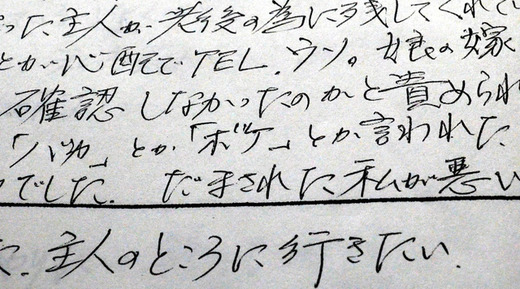 った主人が老後の為に残してくれてい
とが心配でTEL、ウソ。娘の嫁
確認しなかったのかと責められ
「バカ」とか「ボケ」とか言われた
でした。だまされた私が悪い
た、主人のところに行きたい。